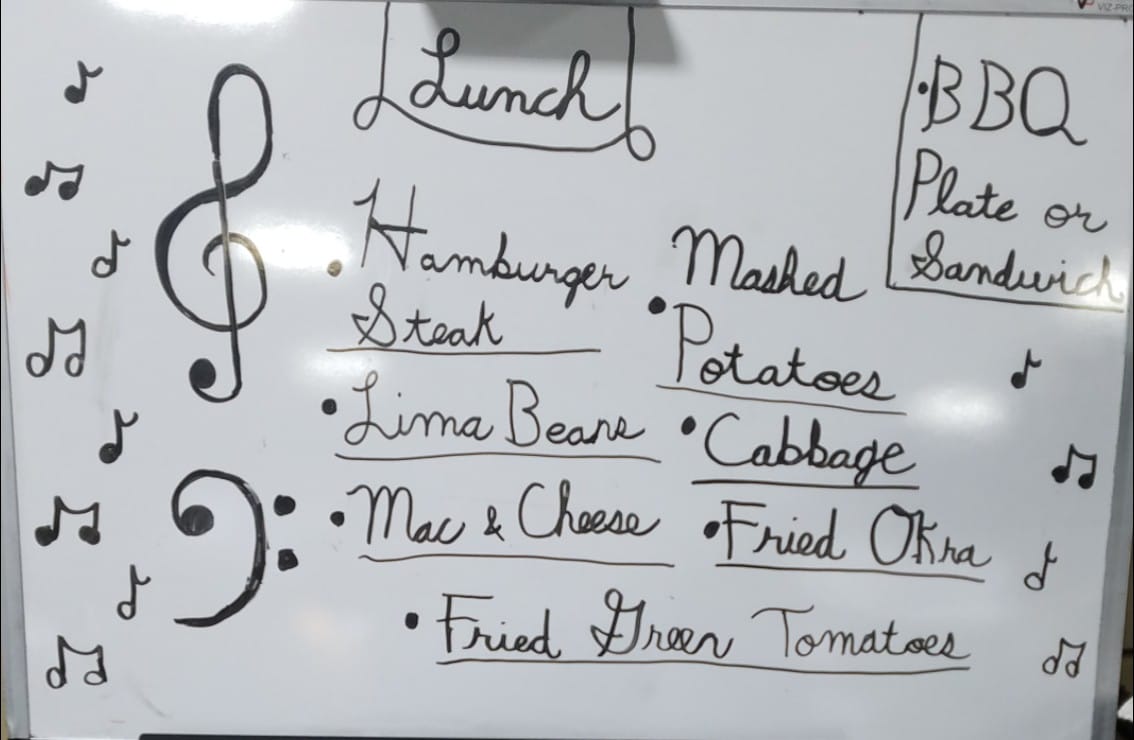 Lunch
• Hamburger
Steak
• Lima Beans
• Mac & Cheese
Mashed
• Potatoes
• Cabbage
• Fried Okra
• Fried Green Tomatoes
• BBQ
Plate or
Sandwich
VIZ-PRO